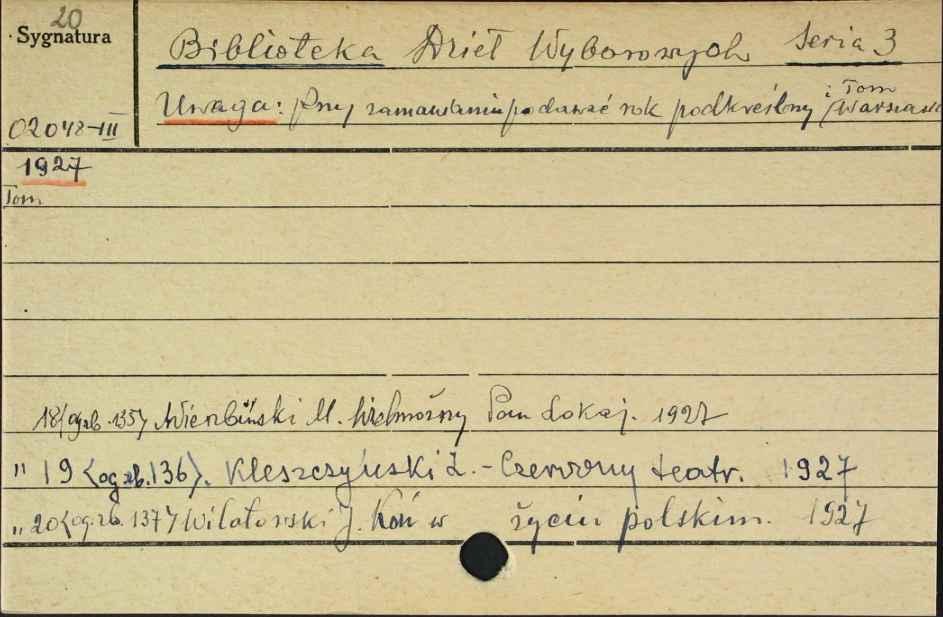 20
Sygnatura
Biblioteka Dzieł Wyborowych Seria 3
Uwaga: przy zamawianiu podawać rok podkreślony i Tom /Warszawa
02048-III
1927
Tom
18/og.zb. 135/ Wierzbiński M. Wielmożny Pan Lokaj. 1927
" 19 <og.zb.136>. Kleszczyński Z. - Czerwony teatr. 1927
" 20<og.zb. 137> Wilatowski J. Koń w życiu polskim. 1927